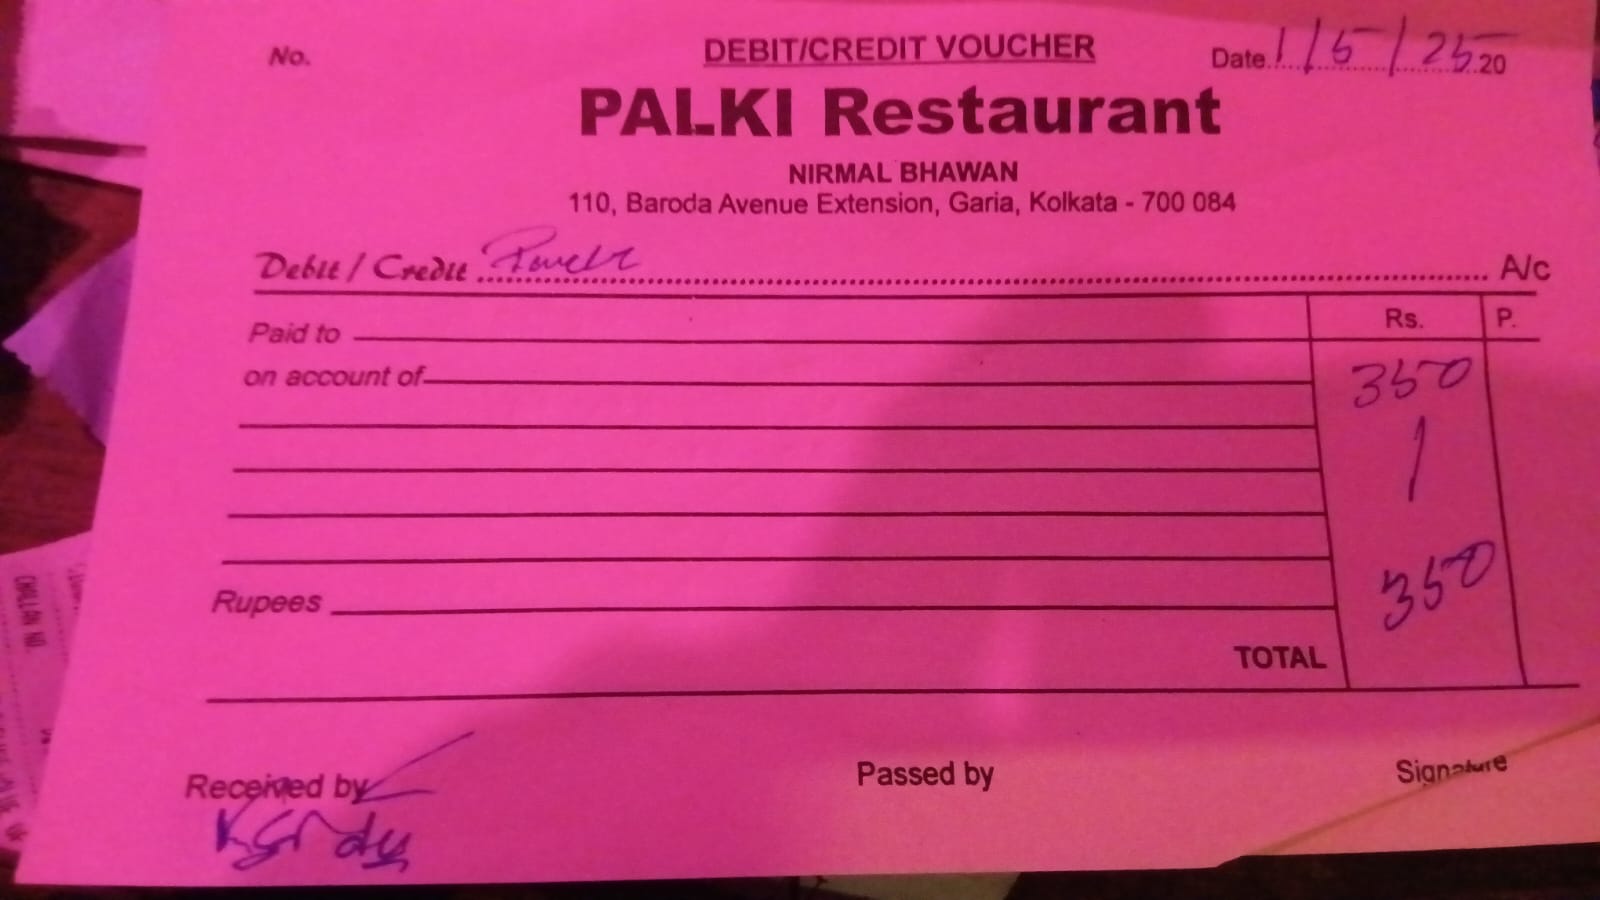 No.
DEBIT/CREDIT VOUCHER
Date 1/5/25 20
PALKI Restaurant
NIRMAL BHAWAN
110, Baroda Avenue Extension, Garia, Kolkata - 700 084
Debit / Credit A/c
Rs. P.
Paid to
350
on account of
350
Rupees
TOTAL
Received by
Passed by
Signature
CHALLAN NO.